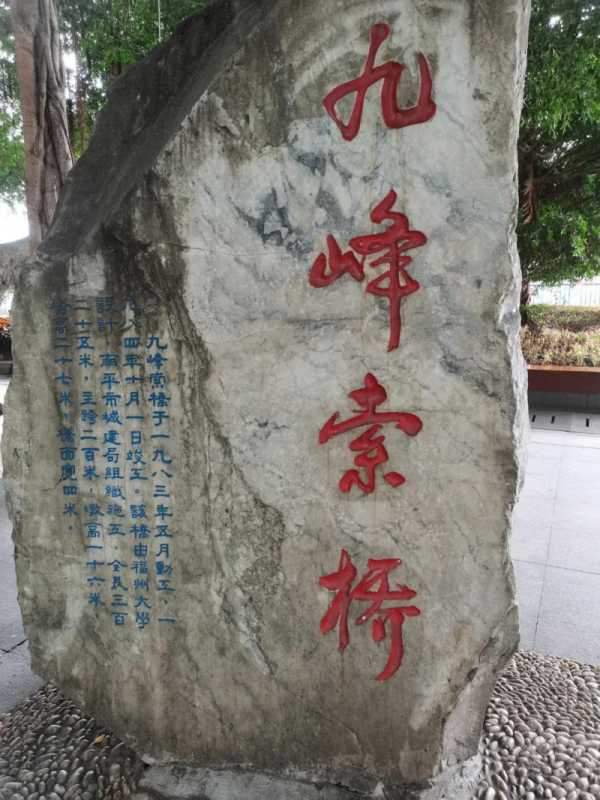 九峰索桥
九峰索橋于一九八三年五月動工，一
九八四年十月一日竣工。該橋由福州大學
設計，南平市城建局組織施工，全長三百
二十五米，主跨二百米，墩高一十六米，
塔高二十七米，橋面寬四米。